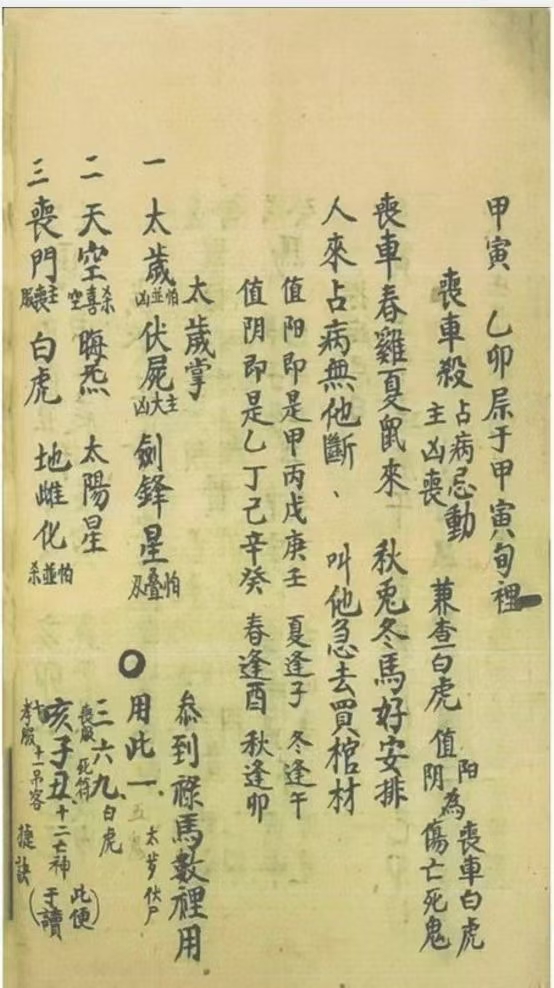 甲寅 乙卯屈于甲寅旬裡
喪車殺 占病忌動 主凶喪 兼查白虎 值阳為喪車白虎 阴 傷亡死鬼
喪車春雞夏鼠來 秋兎冬馬好安排
人來占病無他斷、叫他急去買棺材
值阳即是甲丙戊庚壬 夏逢子 冬逢午
值阴即是乙丁己辛癸 春逢酉 秋逢卯
太歲掌
叅到祿馬數裡用
一 太歲 怕並凶 伏屍 主大凶 劍鋒星 怕叠刄
用此一、 太岁伏尸
二 天空 殺喜空 晦炁 太陽星
三六九、白虎
喪服 死符
三 喪門 主喪服 白虎 地雌化 怕並杀
亥子丑、十二亡神
孝服 十一吊客
捷訣
(此便于讀)